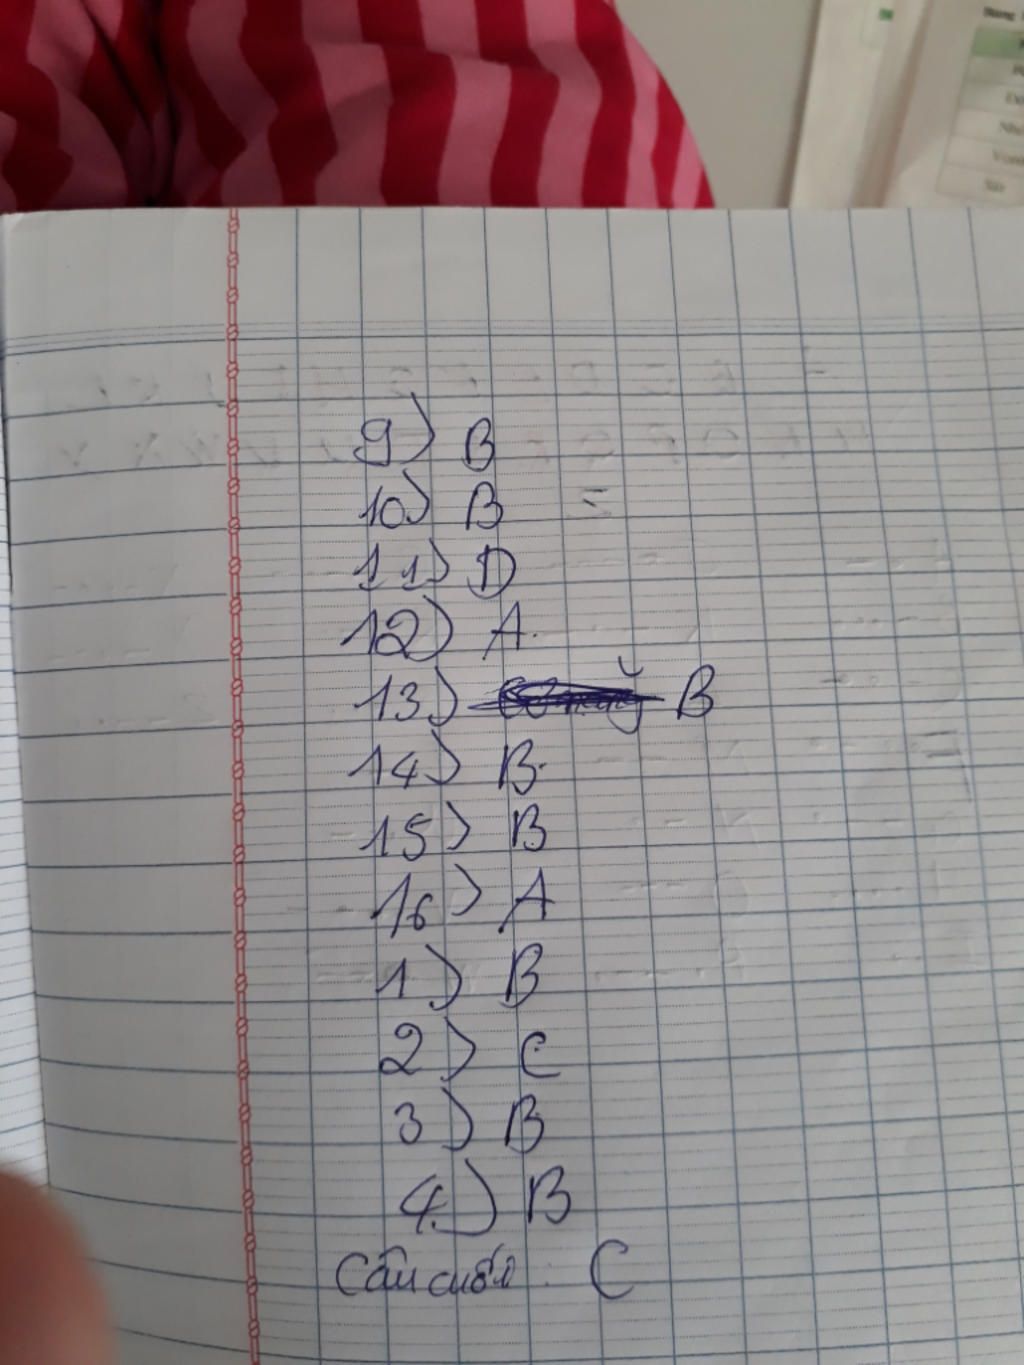 9) B
10) B
11) D
12) A.
13) B
14) B.
15) B
16) A
1) B
2) C
3) B
4.) B
Câu cuối : C